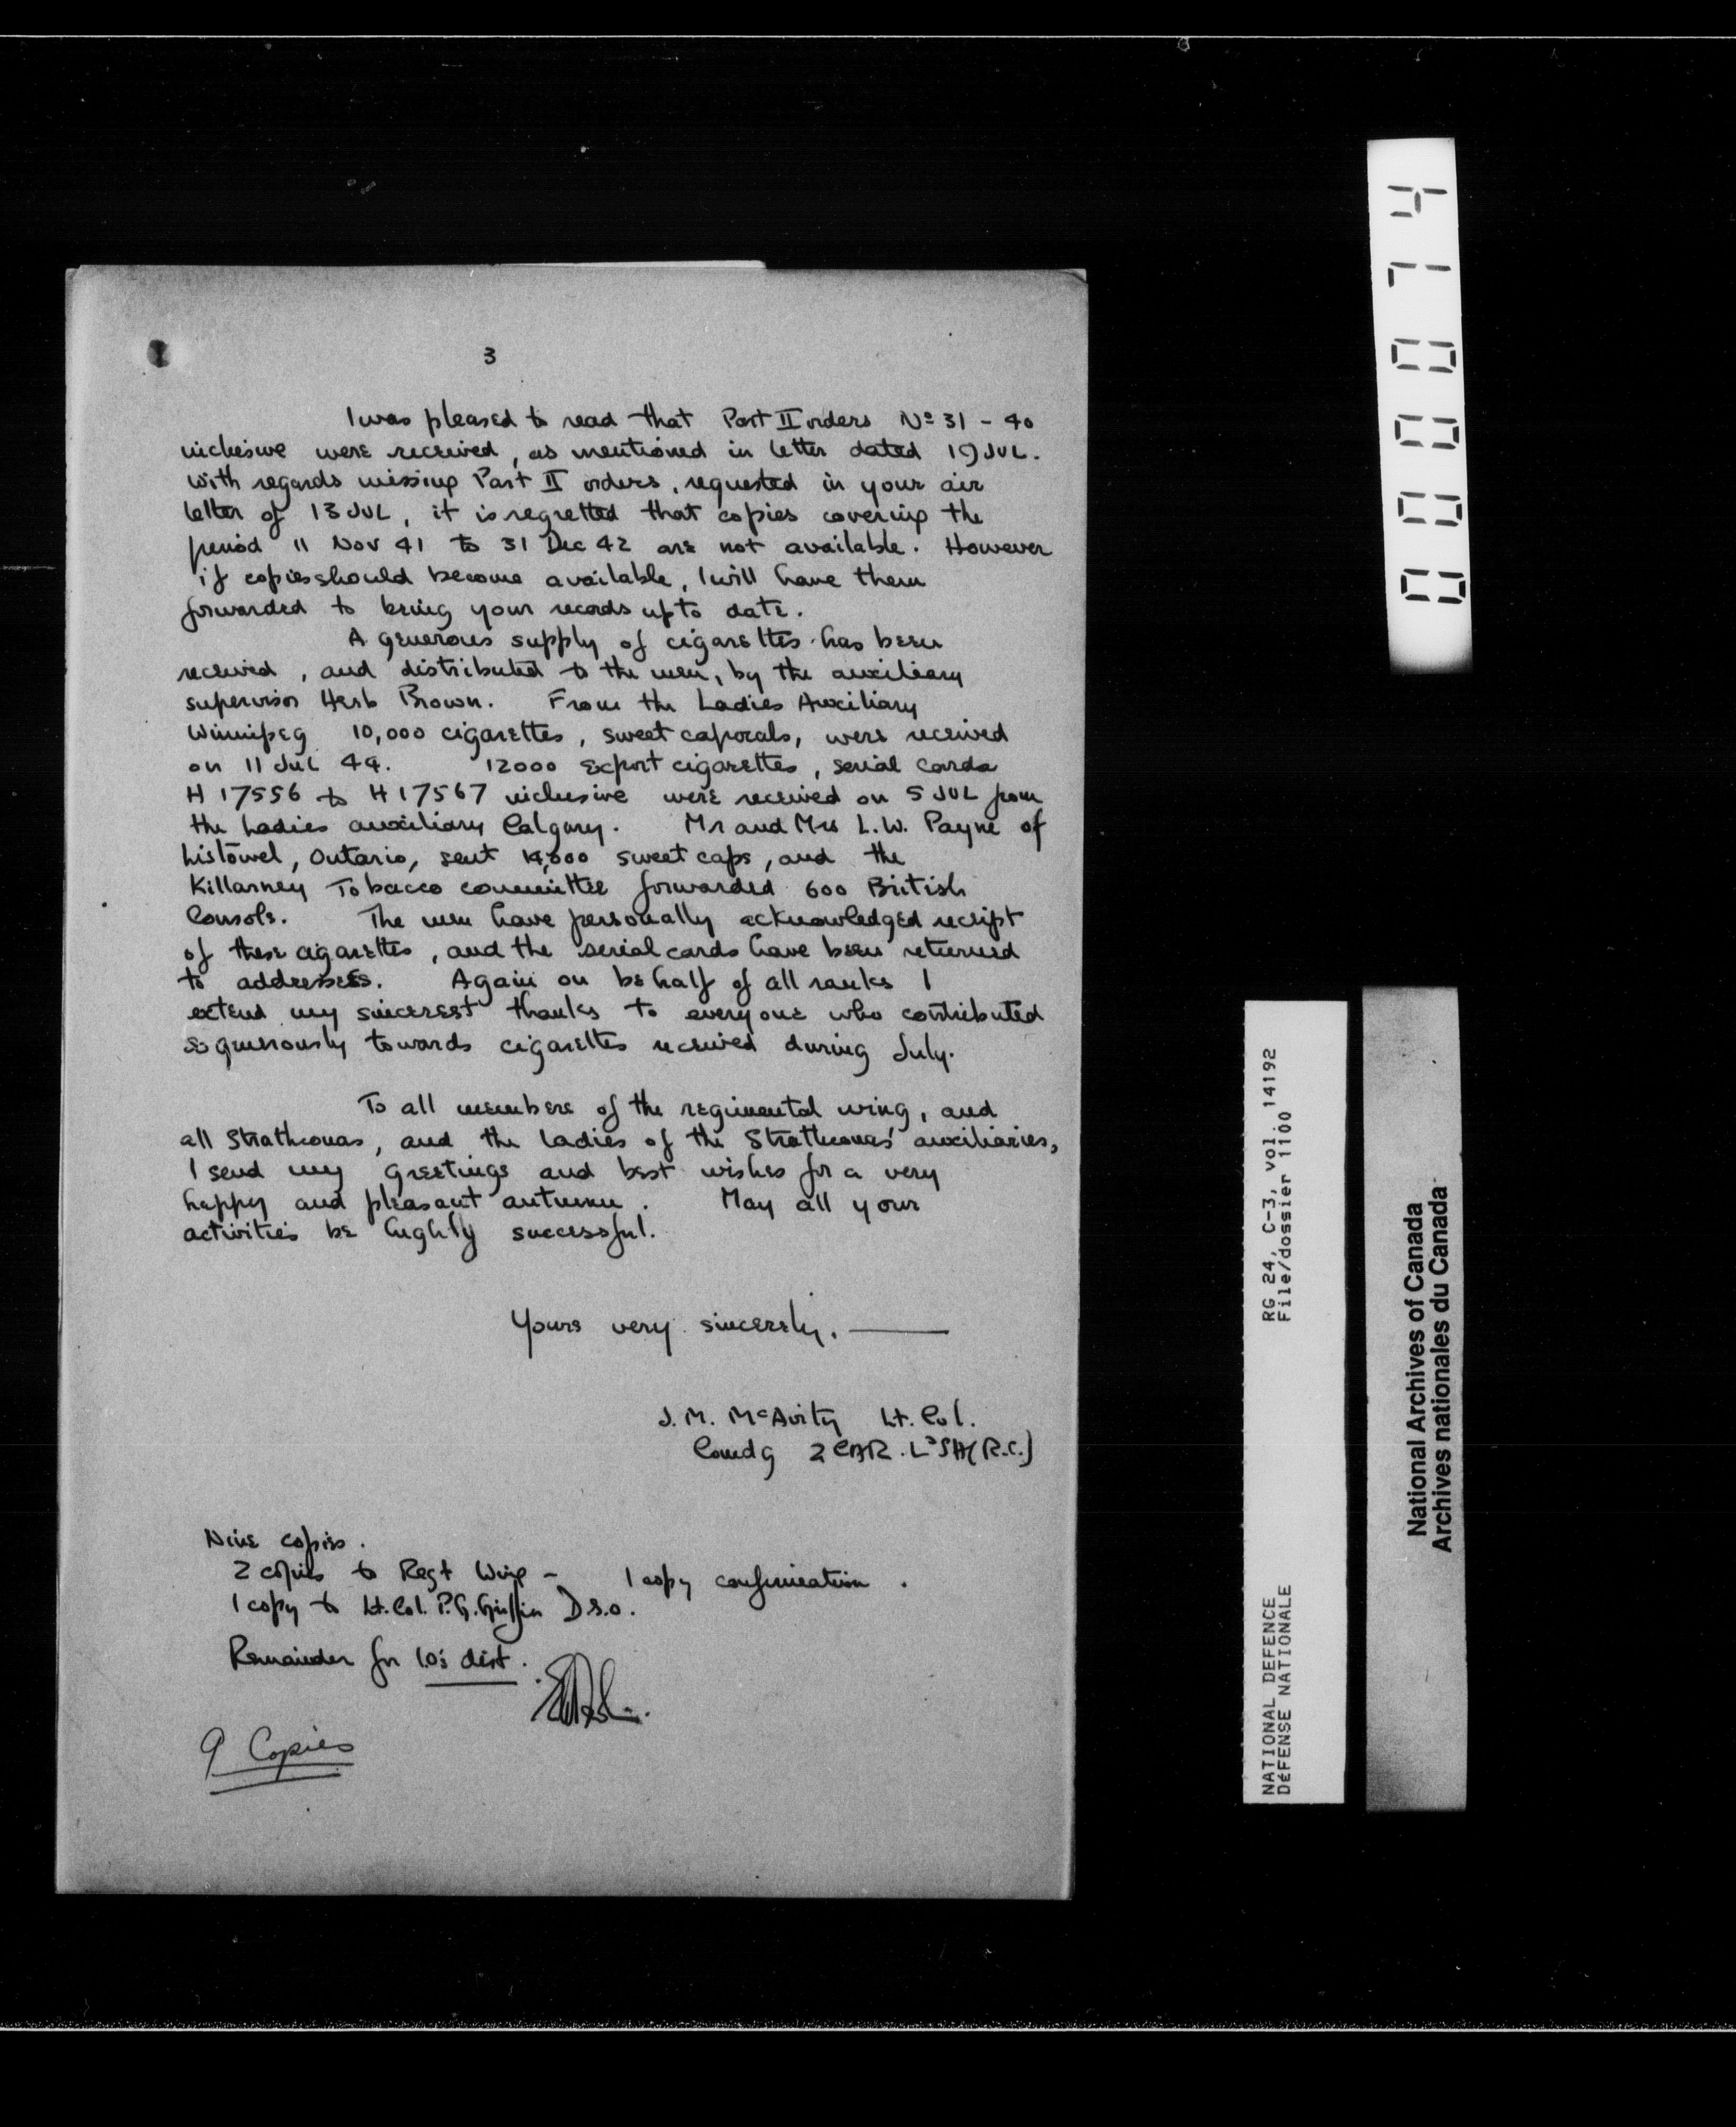 3
I was pleased to read that Part II orders No 31 - 40
inclusive were received, as mentioned in letter dated 19 JUL.
With regards missing Part II orders, requested in your air
letter of 13 JUL, it is regretted that copies covering the
period 11 Nov 41 to 31 Dec 42 are not available. However
if copies should become available, I will have them
forwarded to bring your records up to date.
A generous supply of cigarettes has been
received, and distributed to the men, by the auxiliary
supervisor Herb Brown. From the Ladies Auxiliary
Winnipeg 10,000 cigarettes, sweet caporals, were received
on 11 Jul 44. 12000 Export cigarettes, serial cards
H 17556 to H 17567 inclusive were received on 5 JUL from
the Ladies auxiliary Calgary. Mr and Mrs L.W. Payne of
Listowel, Ontario, sent sweet caps, and the
Killarney Tobacco committee forwarded 600 British
Consols. The men have personally acknowledged receipt
of these cigarettes, and the serial cards have been returned
to addresses. Again on behalf of all ranks I
extend my sincerest thanks to everyone who contributed
so generously towards cigarettes received during July.
To all members of the regimental wing, and
all Strathconas, and the ladies of the Strathconas' auxiliaries,
I send my Greetings and best wishes for a very
happy and pleasant autumn. May all your
activities be highly successful.
Yours very sincerely.
J.M. McAvity Lt. Col.
Comdg 2 CAR. LdSH(R.C.)
Nine copies.
2 copies to Regt Wing - 1 copy confirmation.
1 copy to Lt. Col. P.G. Griffin D.S.O.
Remainder for I.O's dist.
9 Copies
0000074
RG 24, C-3, vol. 14192
File/dossier 1100
NATIONAL DEFENCE
DÉFENSE NATIONALE
National Archives of Canada
Archives nationales du Canada